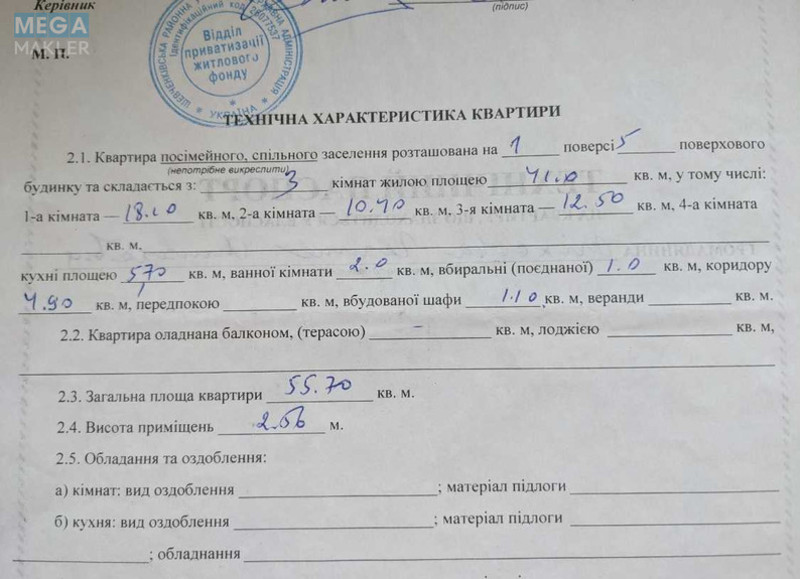 Керівник
(підпис)
MEGA
MAKLER
М. П.
ШЕВЧЕНКІВСЬКА РАЙОННА АДМІНІСТРАЦІЯ
Ідентифікаційний код 26077537
Відділ
приватизації
житлового
фонду
* УКРАЇНА *
ТЕХНІЧНА ХАРАКТЕРИСТИКА КВАРТИРИ
2.1. Квартира посімейного, спільного заселення розташована на 1 поверсі 5 поверхового
(непотрібне викреслити)
будинку та складається з: 3 кімнат жилою площею 41.0 кв. м, у тому числі:
1-а кімната — 18.10 кв. м, 2-а кімната — 10.40 кв. м, 3-я кімната — 12.50 кв. м, 4-а кімната
кв. м.
кухні площею 570 кв. м, ванної кімнати 2.0 кв. м, вбиральні (поєднаної) 1.0 кв. м, коридору
4.90 кв. м, передпокою кв. м, вбудованої шафи 1.10 кв. м, веранди кв. м.
2.2. Квартира оладнана балконом, (терасою) – кв. м, лоджією кв. м,
2.3. Загальна площа квартири 55.70 кв. м.
2.4. Висота приміщень 2.56 м.
2.5. Обладання та оздоблення:
а) кімнат: вид оздоблення ; матеріал підлоги
б) кухня: вид оздоблення ; матеріал підлоги
; обладнання